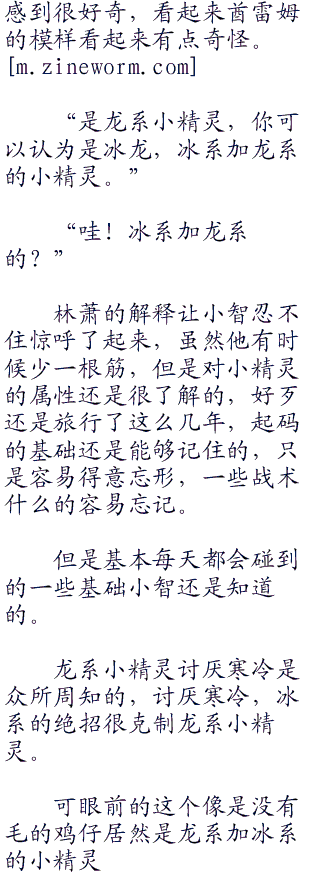 感到很好奇，看起来酋雷姆
的模样看起来有点奇怪。
[m.zineworm.com]
“是龙系小精灵，你可
以认为是冰龙，冰系加龙系
的小精灵。”
“哇！冰系加龙系
的？”
林萧的解释让小智忍不
住惊呼了起来，虽然他有时
候少一根筋，但是对小精灵
的属性还是很了解的，好歹
还是旅行了这么几年，起码
的基础还是能够记住的，只
是容易得意忘形，一些战术
什么的容易忘记。
但是基本每天都会碰到
的一些基础小智还是知道
的。
龙系小精灵讨厌寒冷是
众所周知的，讨厌寒冷，冰
系的绝招很克制龙系小精
灵。
可眼前的这个像是没有
毛的鸡仔居然是龙系加冰系
的小精灵